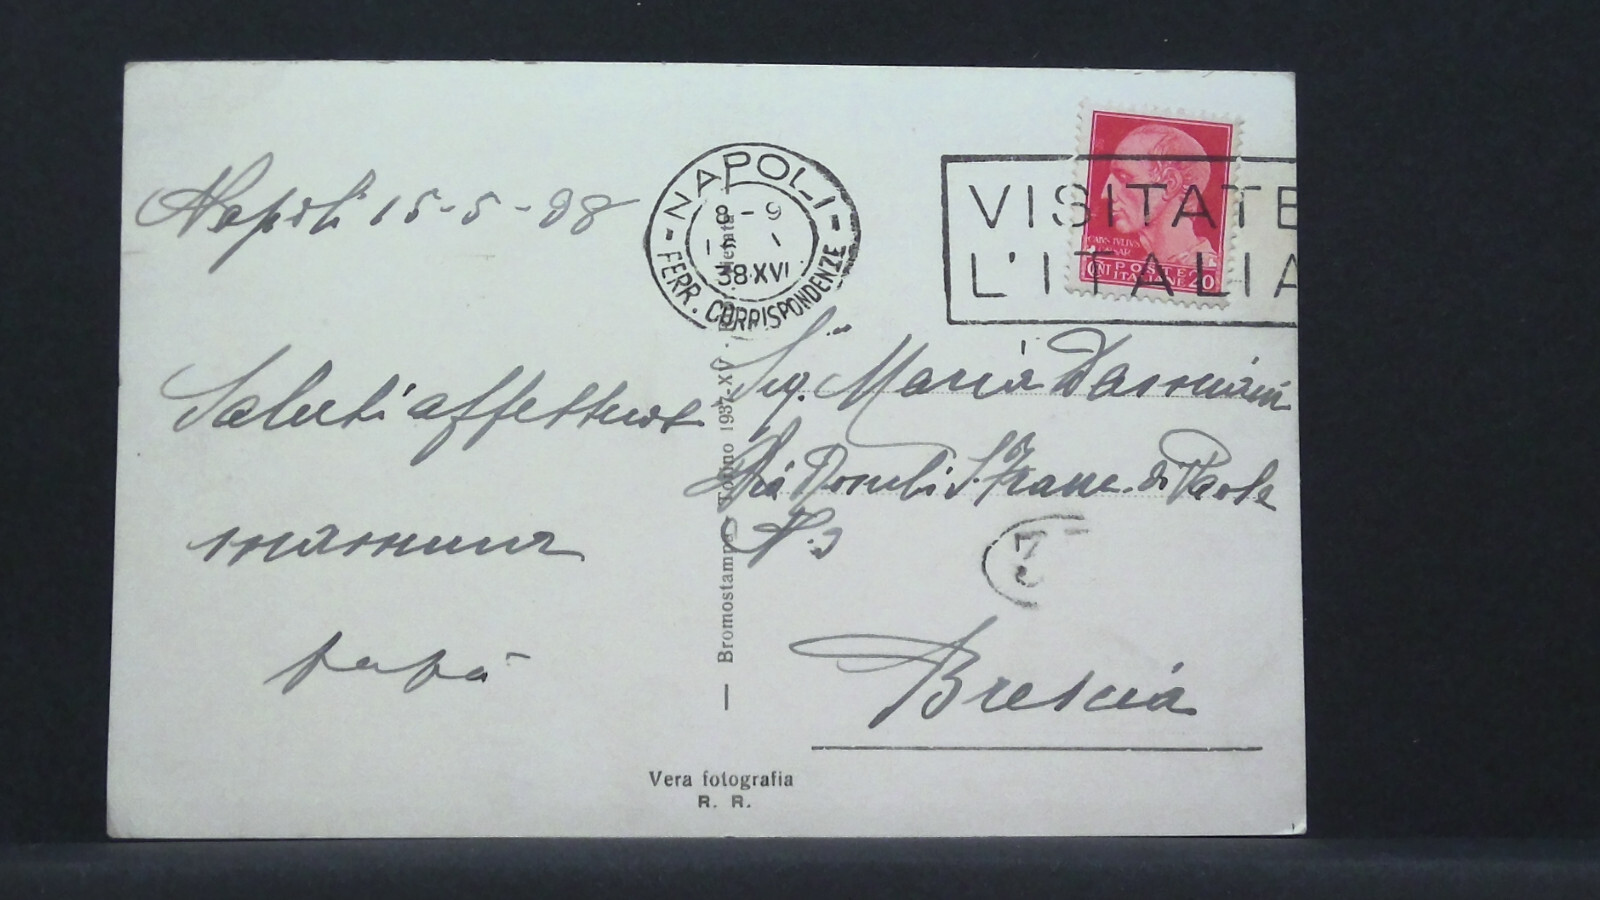 Napoli 15-5-38
Saluti affettuosi
mamma
papà
NAPOLI
8-9
38 XVI
FERR. CORRISPONDENZE
VISITATE
L'ITALIA
CAIVS IVLIVS
CAESAR
CENT 20
POSTE
ITALIANE
Sig. Maria Damiani
Via S. Franc. di Paola
N. 3
3
Brescia
— Bromostampa - Torino 1937-XV -
Vera fotografia
R. R.